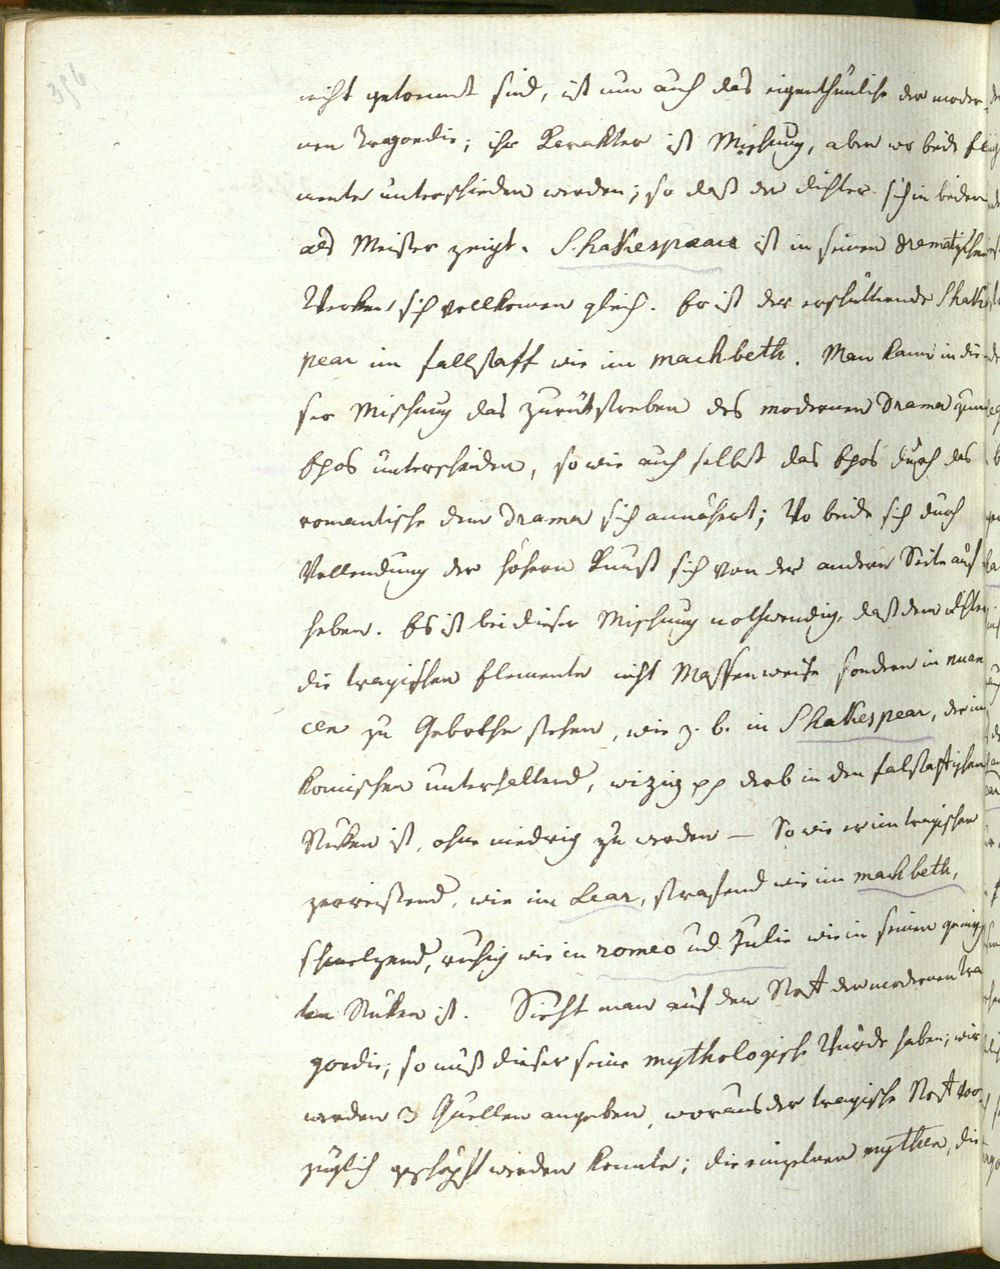 396
nicht getrennt sind, ist nun auch das eigenthümliche der moder-
nen Tragoedie; ihr Karakter ist Mischung, aber wo beide Ele-
mente unterschieden werden; so daß der dichter sich in beiden
als Meister zeigt. Shakespeare ist in seinen dramatischen
Werken sich vollkomen gleich. Er ist der erschütternde Shakes-
pear im fallstaff wie im machbeth. Man kann in die-
ser Mischung das zurükstreben des modernen Drama zum
Epos unterscheiden, so wie auch selbst das Epos durch das
romantische dem Drama sich annähert; Wo beide sich durch
Vollendung der höhern Kunst sich von der andern Seite auf-
heben. Es ist bei dieser Mischung nothwendig, daß dem dichter
die tragischen Elemente nicht Massenweise sondern in nuan
cen zu Gebothe stehen, wie z. b. in Shakespear, der im
komischen unterhaltend, wizig pp derb in den falstafischen
Stüken ist, ohne niedrig zu werden — So wie er im tragischen
zerreissend, wie im Lear, strafend wie im machbeth,
schmelzend, ruhig wie in romeo und Julie wie in seinen
Stüken ist. Sieht man auf den Stoff der modernen Tra
goedie, so muß dieser seine mythologische Würde haben; wir
werden 3 Quellen angeben, woraus der tragische Stoff vor-
züglich geschöpft werden konnte; die einzelnen mythen, die